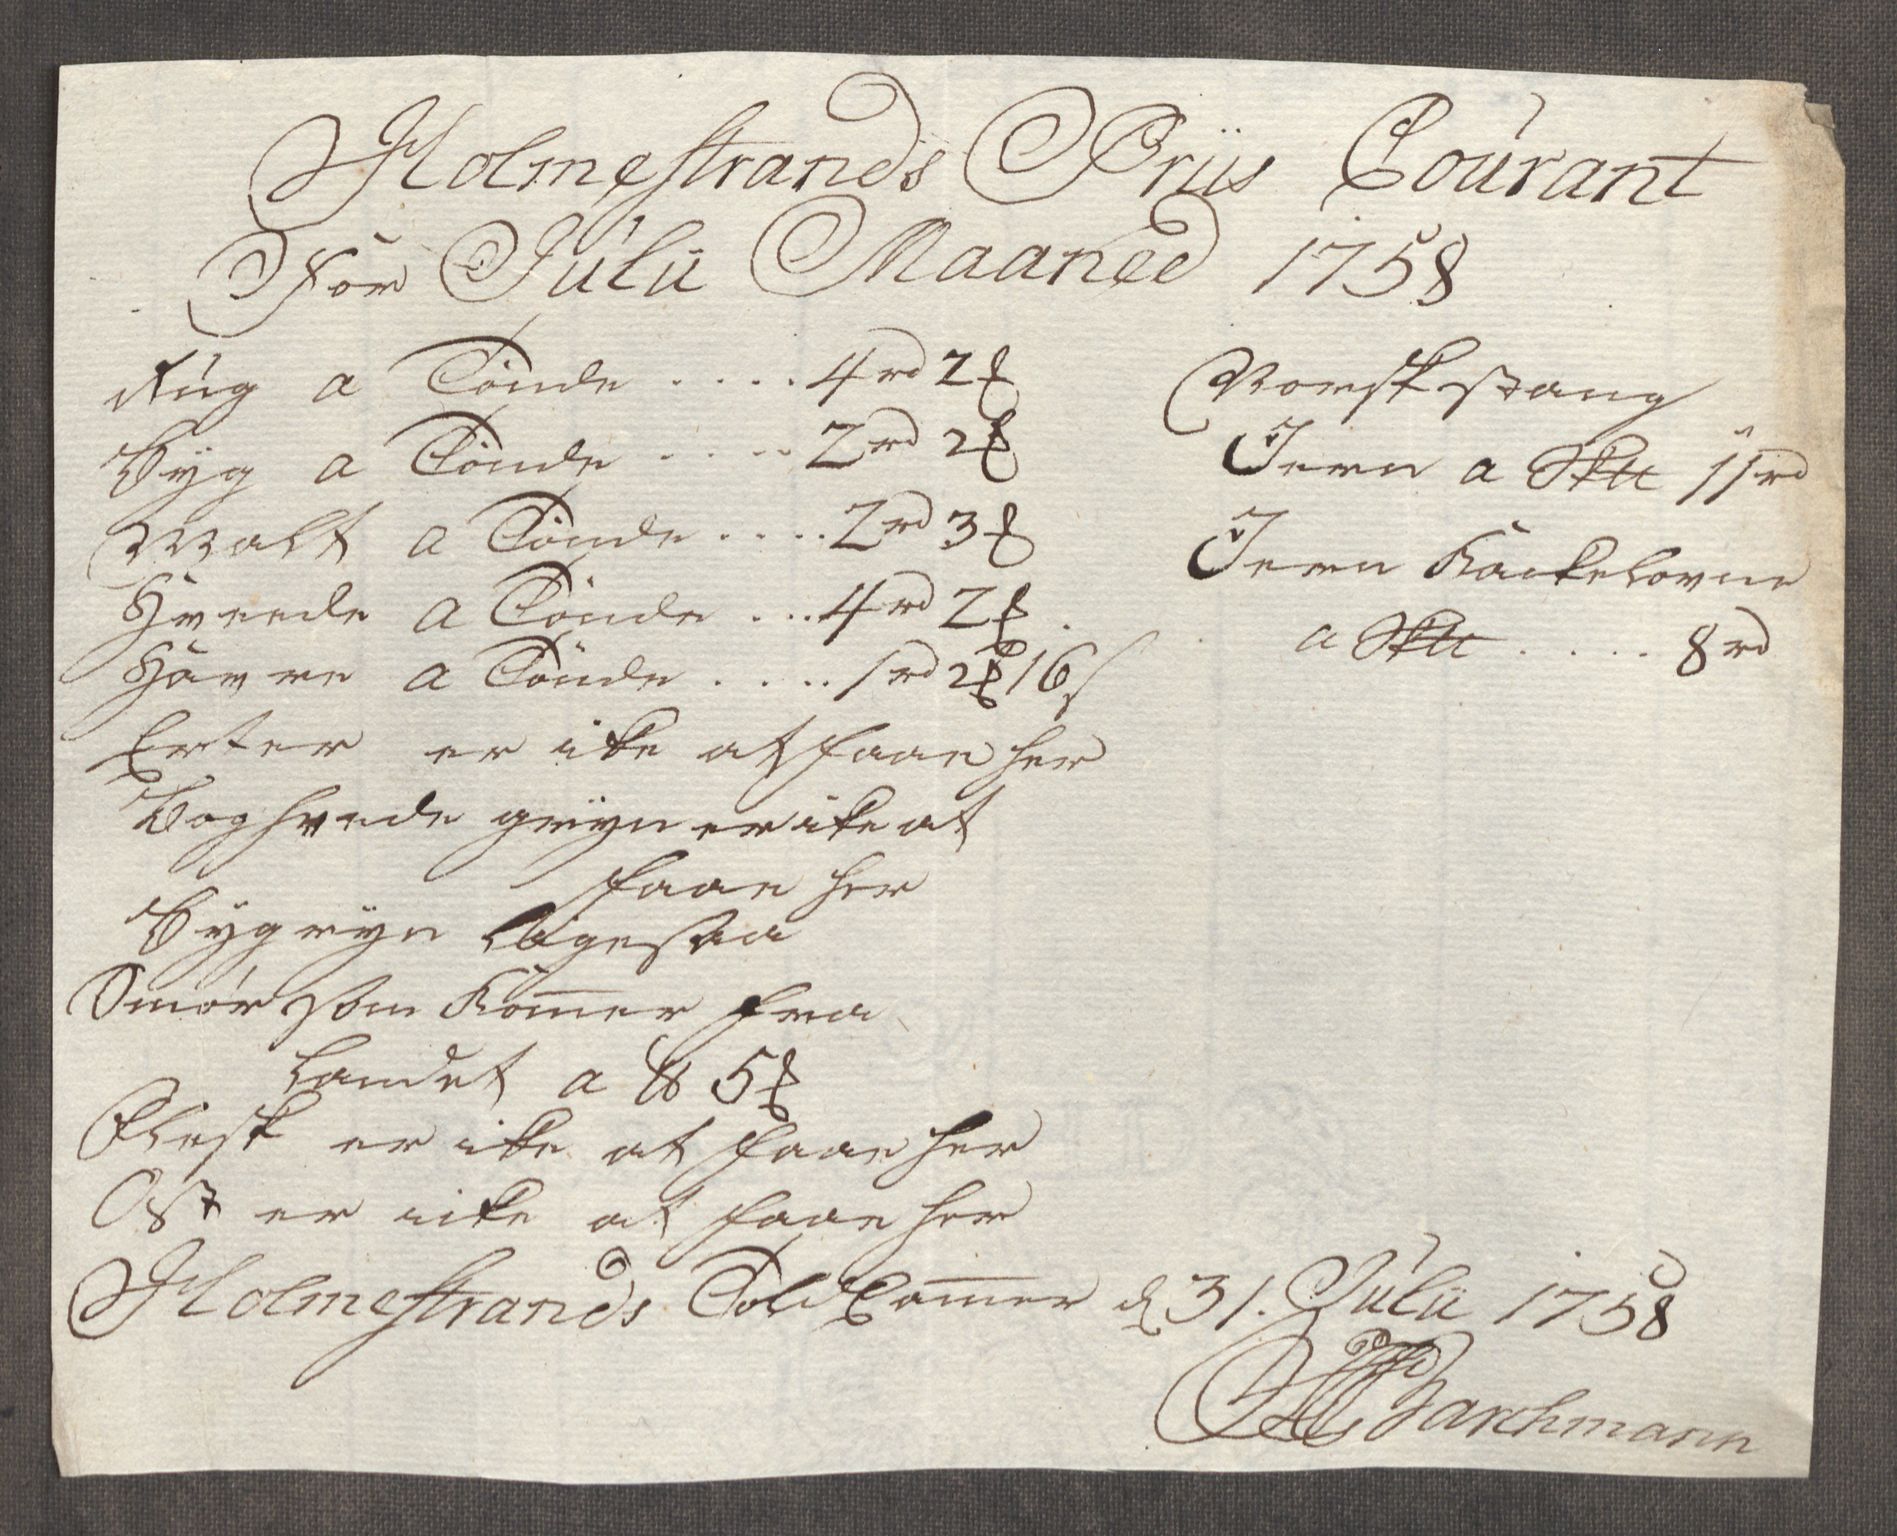 Holmestrands Priis Courant
For Julii Maaned 1758
Rug a Tønde .... 4 rd 2 ₰
Byg a Tønde .... 2 rd 2 ₰
Malt a Tønde .... 2 rd 3 ₰
Hveede a Tønde ... 4 rd 2 ₰.
Havre a Tønde .... 1 rd 2 ₰ 16 s
Erter er icke at faae her
Boghvede gryn er icke at
faae her
Byg gryn ligesaa
Smør som Kom̅er fra
Landet a ℔ 5 ₰
Flesk er icke at faae her
Ost er icke at faae her
Norsk stang
Jern a Sk℔ 11 rd
Jern Kackelovne
a Sk℔ .... 8 rd
Holmestrands Told Cam̅er d 31. Julii 1758
Barchmann